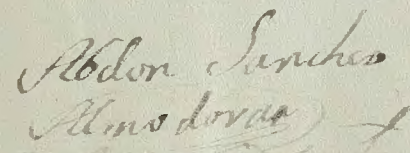 Abdon Sanches
Almodovar